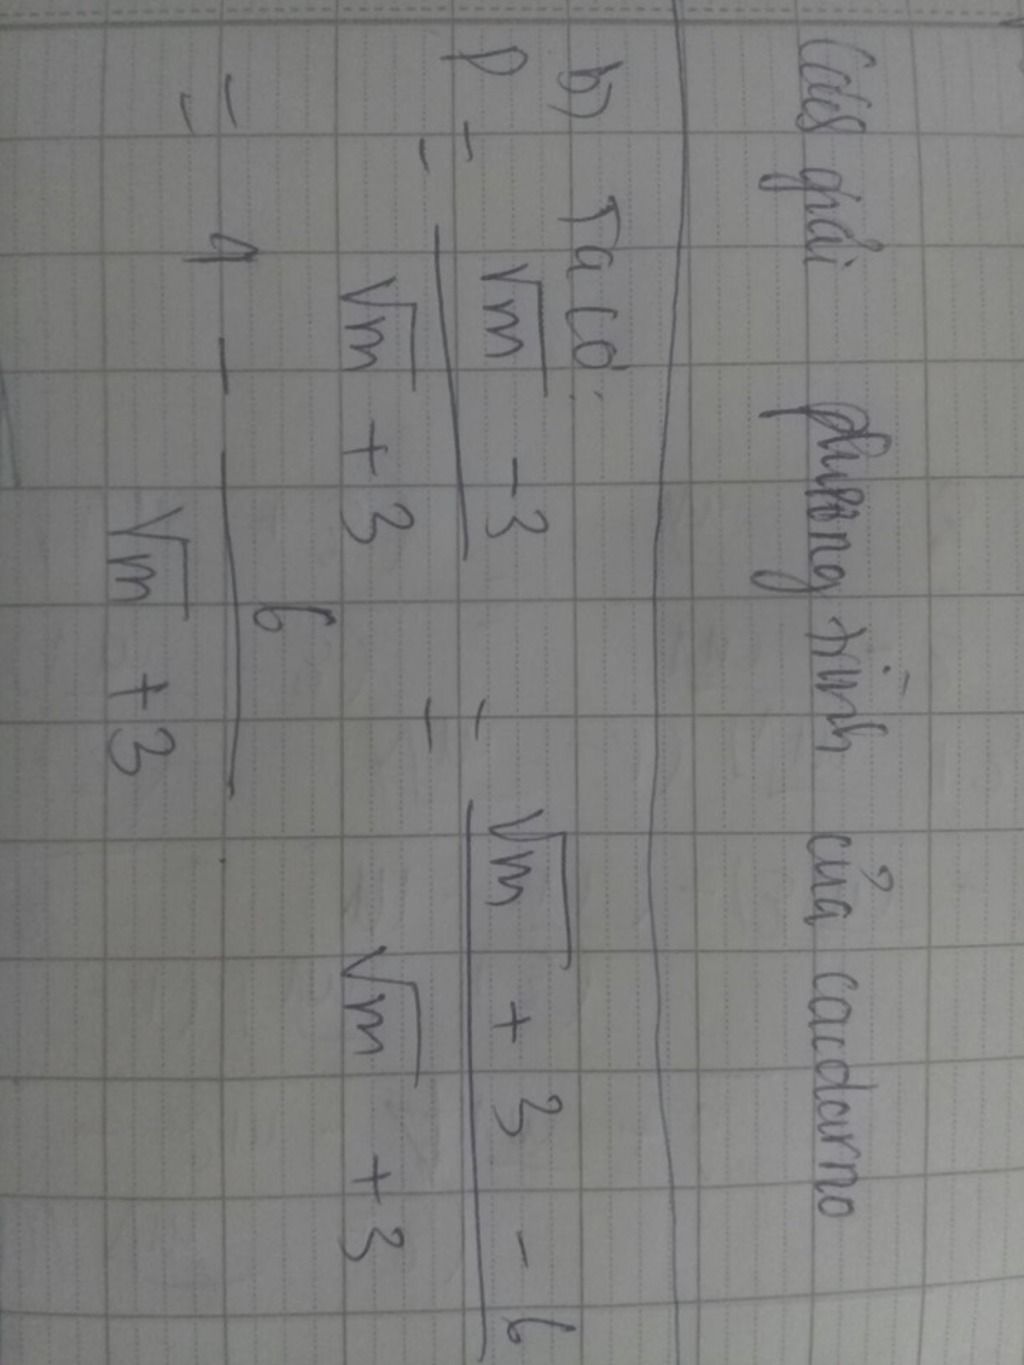 Cách giải phương trình của cacdarno
b) Ta có:
P = (√m - 3)/(√m + 3) = (√m + 3 - 6)/(√m + 3)
= 1 - 6/(√m + 3)